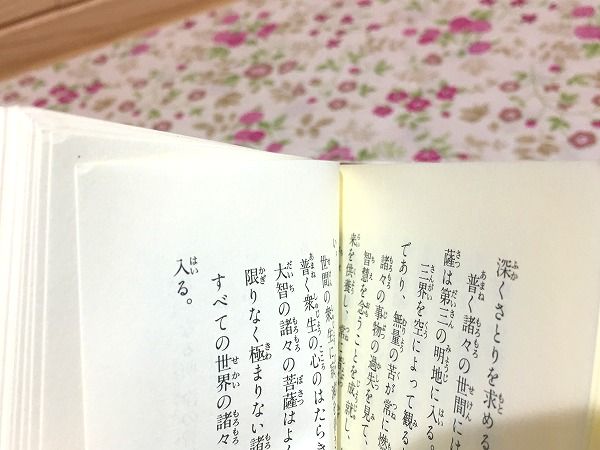 深くさとりを求める
普く諸々の世間には
薩は第三の明地に入る。
三界を空によって観る
であり、無量の苦が常に
諸々の事物の過失を見て、
智慧を念うことを成就し、
来を供養し、
世間の衆生に
普く衆生の心のはたらき
大智の諸々の菩薩はよく
限りなく極まりない諸
すべての世界の諸々
入る。